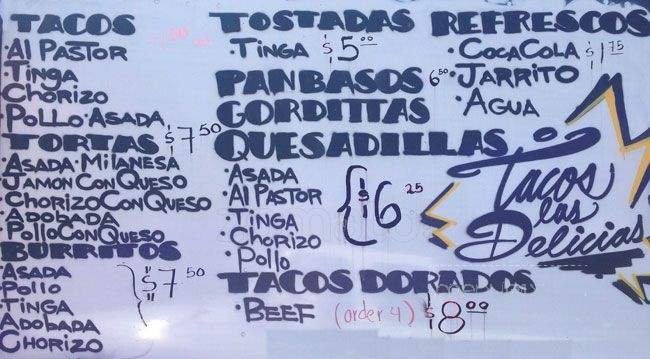 TACOS
·Al PASTOR
·TINGA
CHORIZO
·POLLO·ASADA
TORTAS $7 50
·ASADA·MILANESA
JAMON CON QUESO
·CHORIZO CON QUESO
·ADOBADA
·POLLO CON QUESO
BURRITOS
·ASADA
·POLLO
·TINGA
ADOBADA
CHORIZO
$7 50
TOSTADAS
·TINGA $5 00
PANBASOS 6 50
GORDITTAS
QUESADILLAS
·ASADA
·Al PASTOR
·TINGA
·CHORIZO
·POLLO
$6 25
TACOS DORADOS
·BEEF (order 4) $8 00
REFRESCOS
·COCACOLA $1 75
·JARRITO
·AGUA
Tacos
las
Delicias